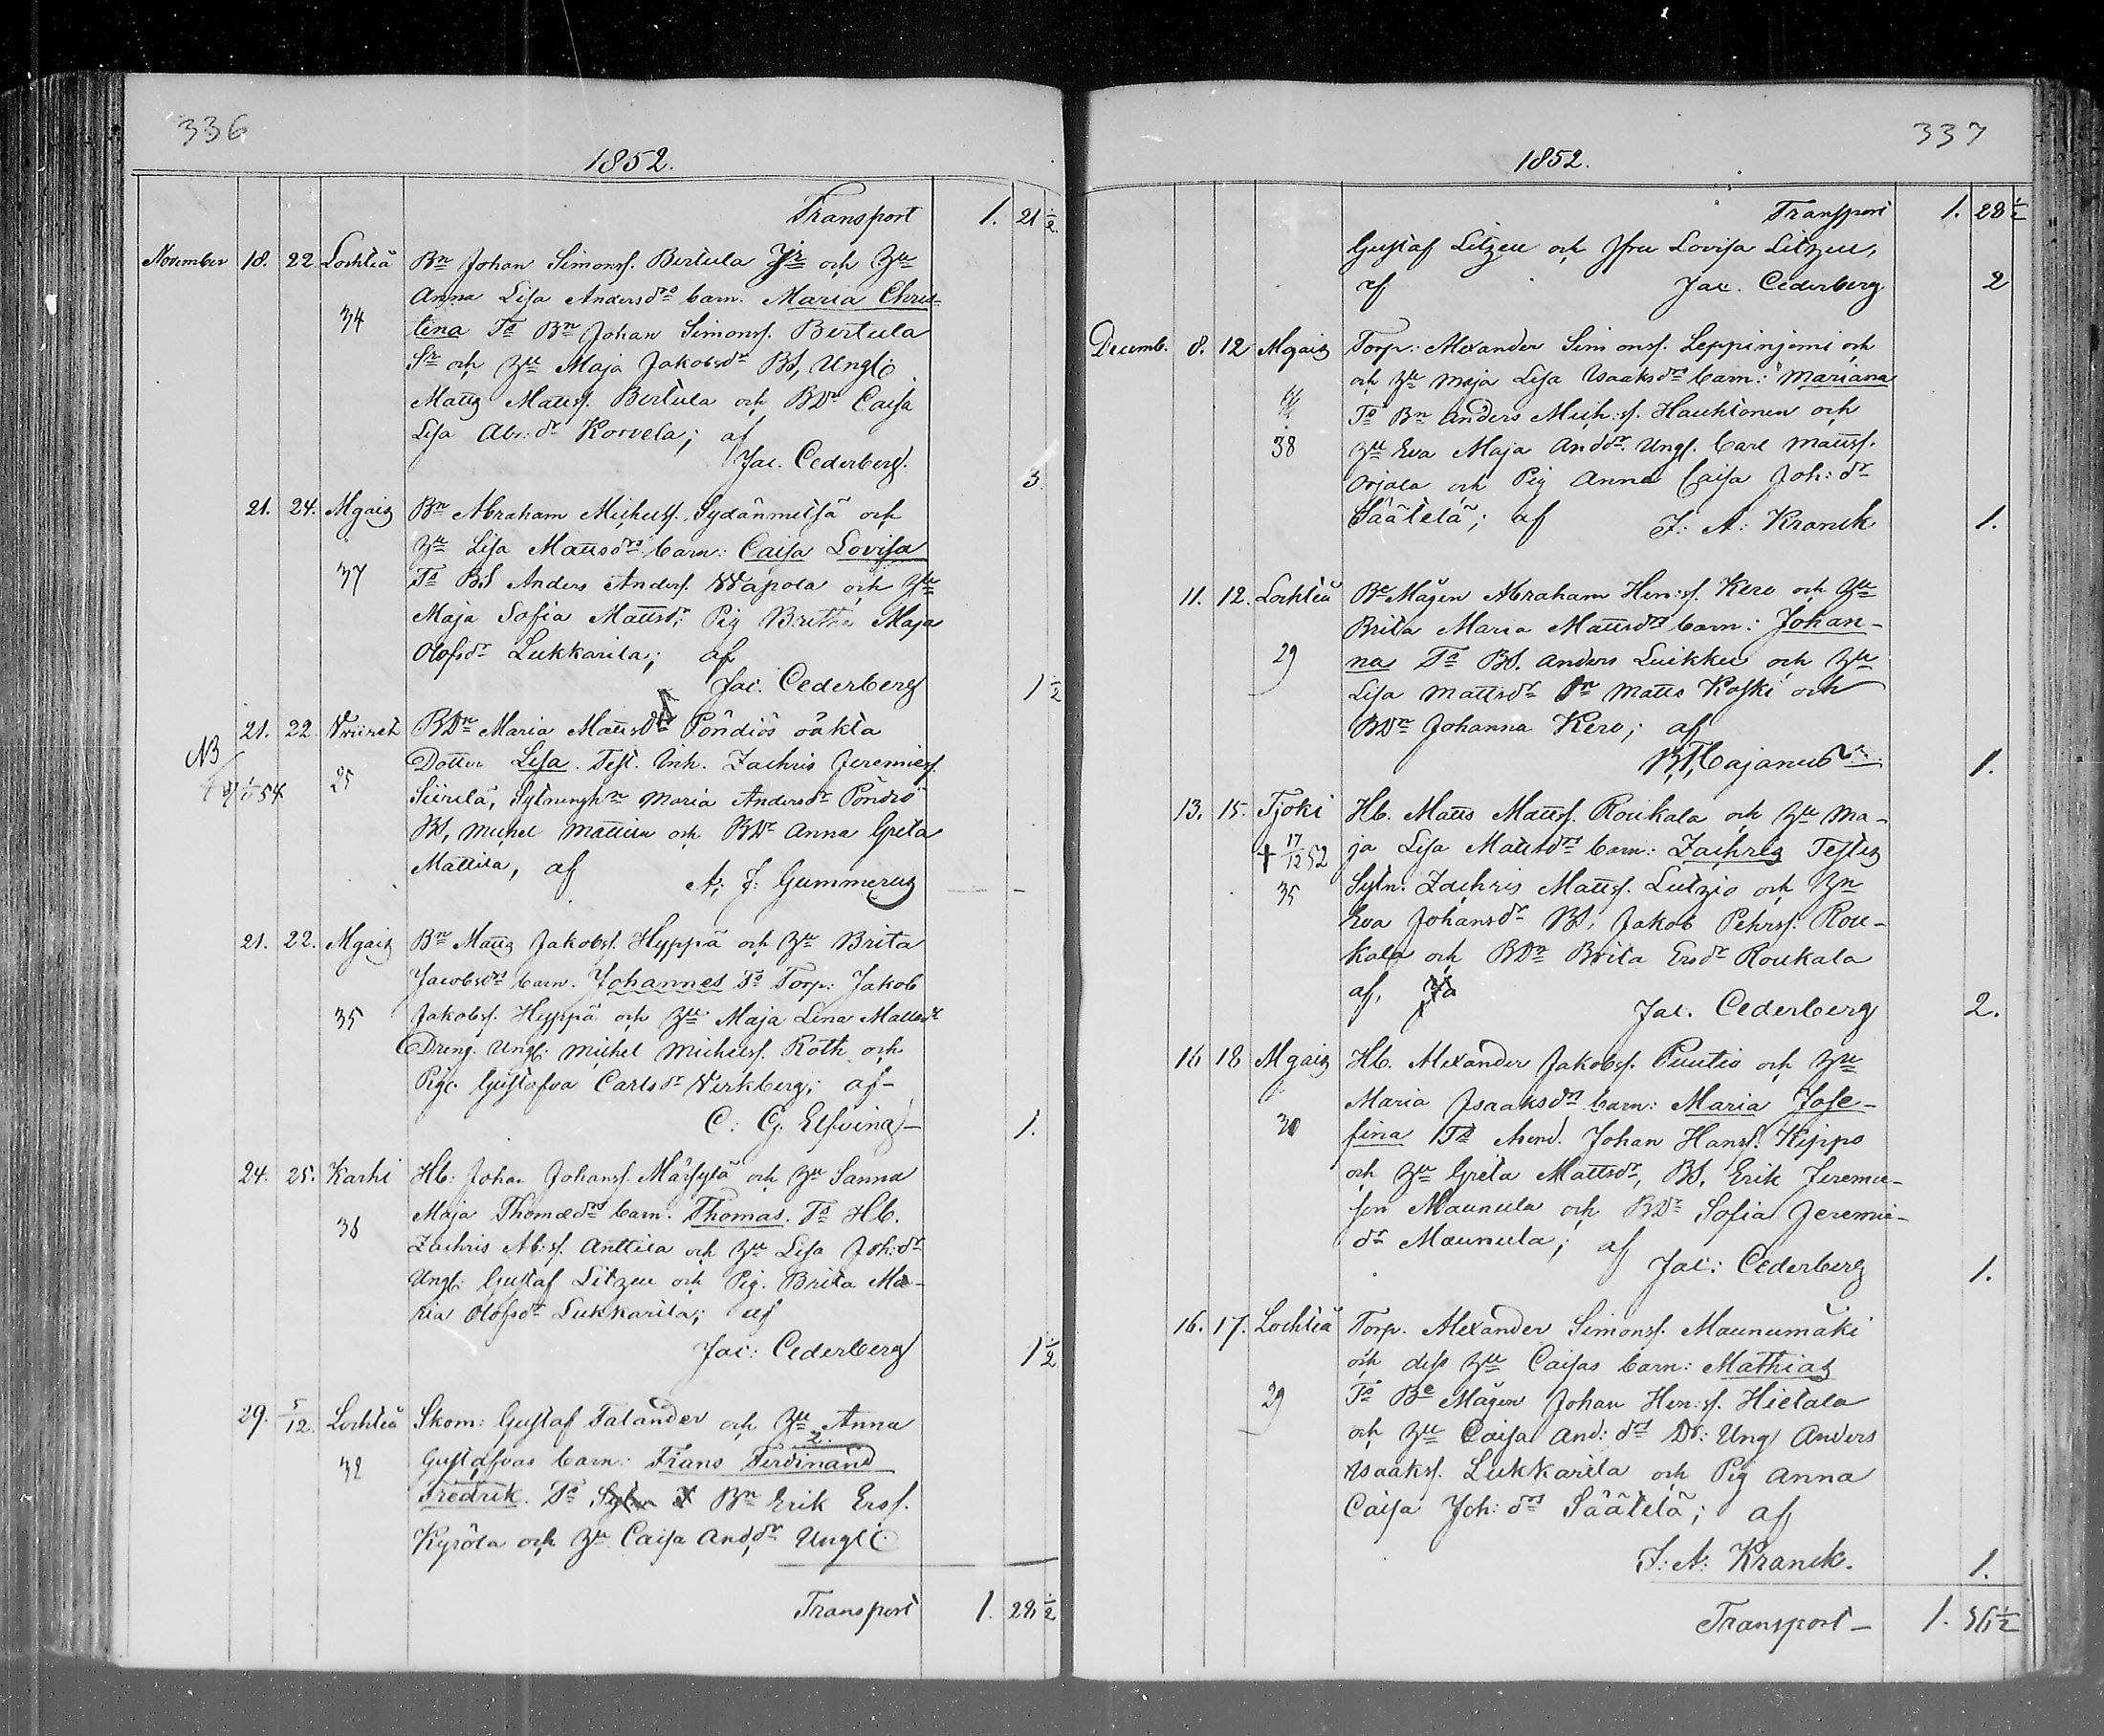 336
1852.
Transport 1. 21 1/2
November 18. 22 Lochteå Bn Johan Simonss. Bertula Jr och Hu
Anna Lisa Andersdrs barn. Maria Chris-
34 tina Ts Bn Johan Simonss. Bertula
Sr och Hu Maja Jakobsdr BS, Ungl:
Matts Matts. Bertula och BDr Caisa
Lisa Abr: dr Korvela; af
Jac. Cederberg. 3.
21. 24. Mgais Bn Abraham Michelss. Sydänmetsä och
Hu Lisa Mattsdrs barn: Caisa Lovisa
37 Ts BS Anders Anderss. Wapola och Hu
Maja Sofia Mattsdr: Pig Britha Maja
Olofsdr Lukkarila; af
Jac. Cederberg 1 1/2
21. 22 BDn Maria Mattsdr Pöndiös oäkta
NB Dotter Lisa. Test. Inh. Zachris Jeremiess.
54 25 Siirilä, Maria Andersdr Pöndiö
BS, Michel Mattila och BDr Anna Greta
Mattila, af A: F: Gummerus — -
21. 22. Mgais Bn Matts Jakobss. Hyppä och Hu Brita
Jacobsdrs barn. Johannes Ts Torp: Jakob
35 Jakobss. Hyppä och Hu Maja Lena Mattsdr
Dreng. Ungl: Michel Michelss. Roth och
Pig. Gustafva Carlsdr Verkberg; af-
C. G. Elfving- 1.
24. 25. Karhi Hb: Johan Johanss. Märsylä och Hu Sanna
Maja Thomædrs barn. Thomas. Ts Hb.
36 Zachris Ab: s. Anttila och Hu Lisa Joh: dr
Ungl: Gustaf Litzen och Pig. Brita Ma-
ria Olofsdr Lukkarila; af
Jac: Cederberg 1 1/2
29. 5/12. Lochteå Skom: Gustaf Talander och Hu Anna
2.
32 Gustafvas barn: Frans Ferdinand
Fredrik. Ts Bn Erik Erss.
Kyrölä och Hu Caisa And: dr Ungl:
Transport 1. 28 1/2
337
1852.
Transport 1. 28 1/2
Gustaf Litzen och Jfru Lovisa Litzen,
af Jac. Cederberg 2
Decemb. 8. 12 Mgais Torp: Alexander Simonss. Leppinjemi och
och Hu Maja Lisa Isaaksdrs barn: Mariana
Ts Bn Anders Mich: s. Hauhtonen och
38 Hu Eva Maja Anddr. Ungl. Carl Mattss.
Orjala och Pig Anna Caisa Joh: dr
Säätelä; af J: A: Kranck 1.
11. 12. Lochteå Be Mågen Abraham Hen: s. Kero och Hu
Brita Maria Mattsdrs barn: Johan-
29 na Ts BS. Anders Luikku och Hu
Lisa Mattsdr Matts Koski och
BDn Johanna Kero; af
Cajanus 1.
13. 15. Tjoki Hb. Matts Mattss. Roukala och Hu Ma-
† 17/12 52 ja Lisa Mattsdrs barn: Zachris Testes
35 Sytn. Zachris Mattss. Lutzio och Hu
Eva Johansdr BS, Jakob Pehrss. Rou-
kala och BDn Brita Ersdr Roukala
af,
Jac. Cederberg 2.
16 18 Mgais Hb. Alexander Jakobss. Puutio och Hu
Maria Isaaksdrs barn: Maria Jose-
30 fina Ts Arend. Johan Hanss. Kippo
och Hu Greta Mattsdr, BS, Erik Jeremie-
son Maunula och BDr Sofia Jeremie-
dr Maunula; af
Jac: Cederberg 1.
16. 17. Lochteå Torp. Alexander Simonss. Maunumäki
och dess Hu Caisas barn: Mathias
29 Ts Be Mågen Johan Hen: s. Hietala
och Hu Caisa And: drs Dr: Ungl Anders
Isaakss. Lukkarila och Pig Anna
Caisa Joh: drs Säätelä; af
J: A: Kranck. 1.
Transport - 1. 36 1/2